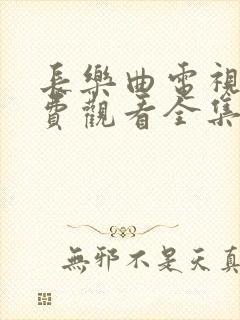 長樂曲電視
費觀看全集
無邪不是天真